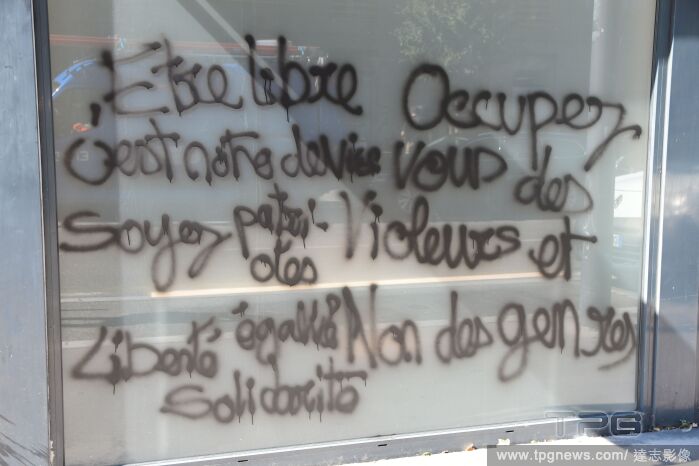 Etre libre
c'est notre devise
soyez patri-
otes
Liberté égalité
Solidarité
Occupez
vous des
Violeurs et
Non des genres
TPG
www.tpgnews.com/ 達志影像